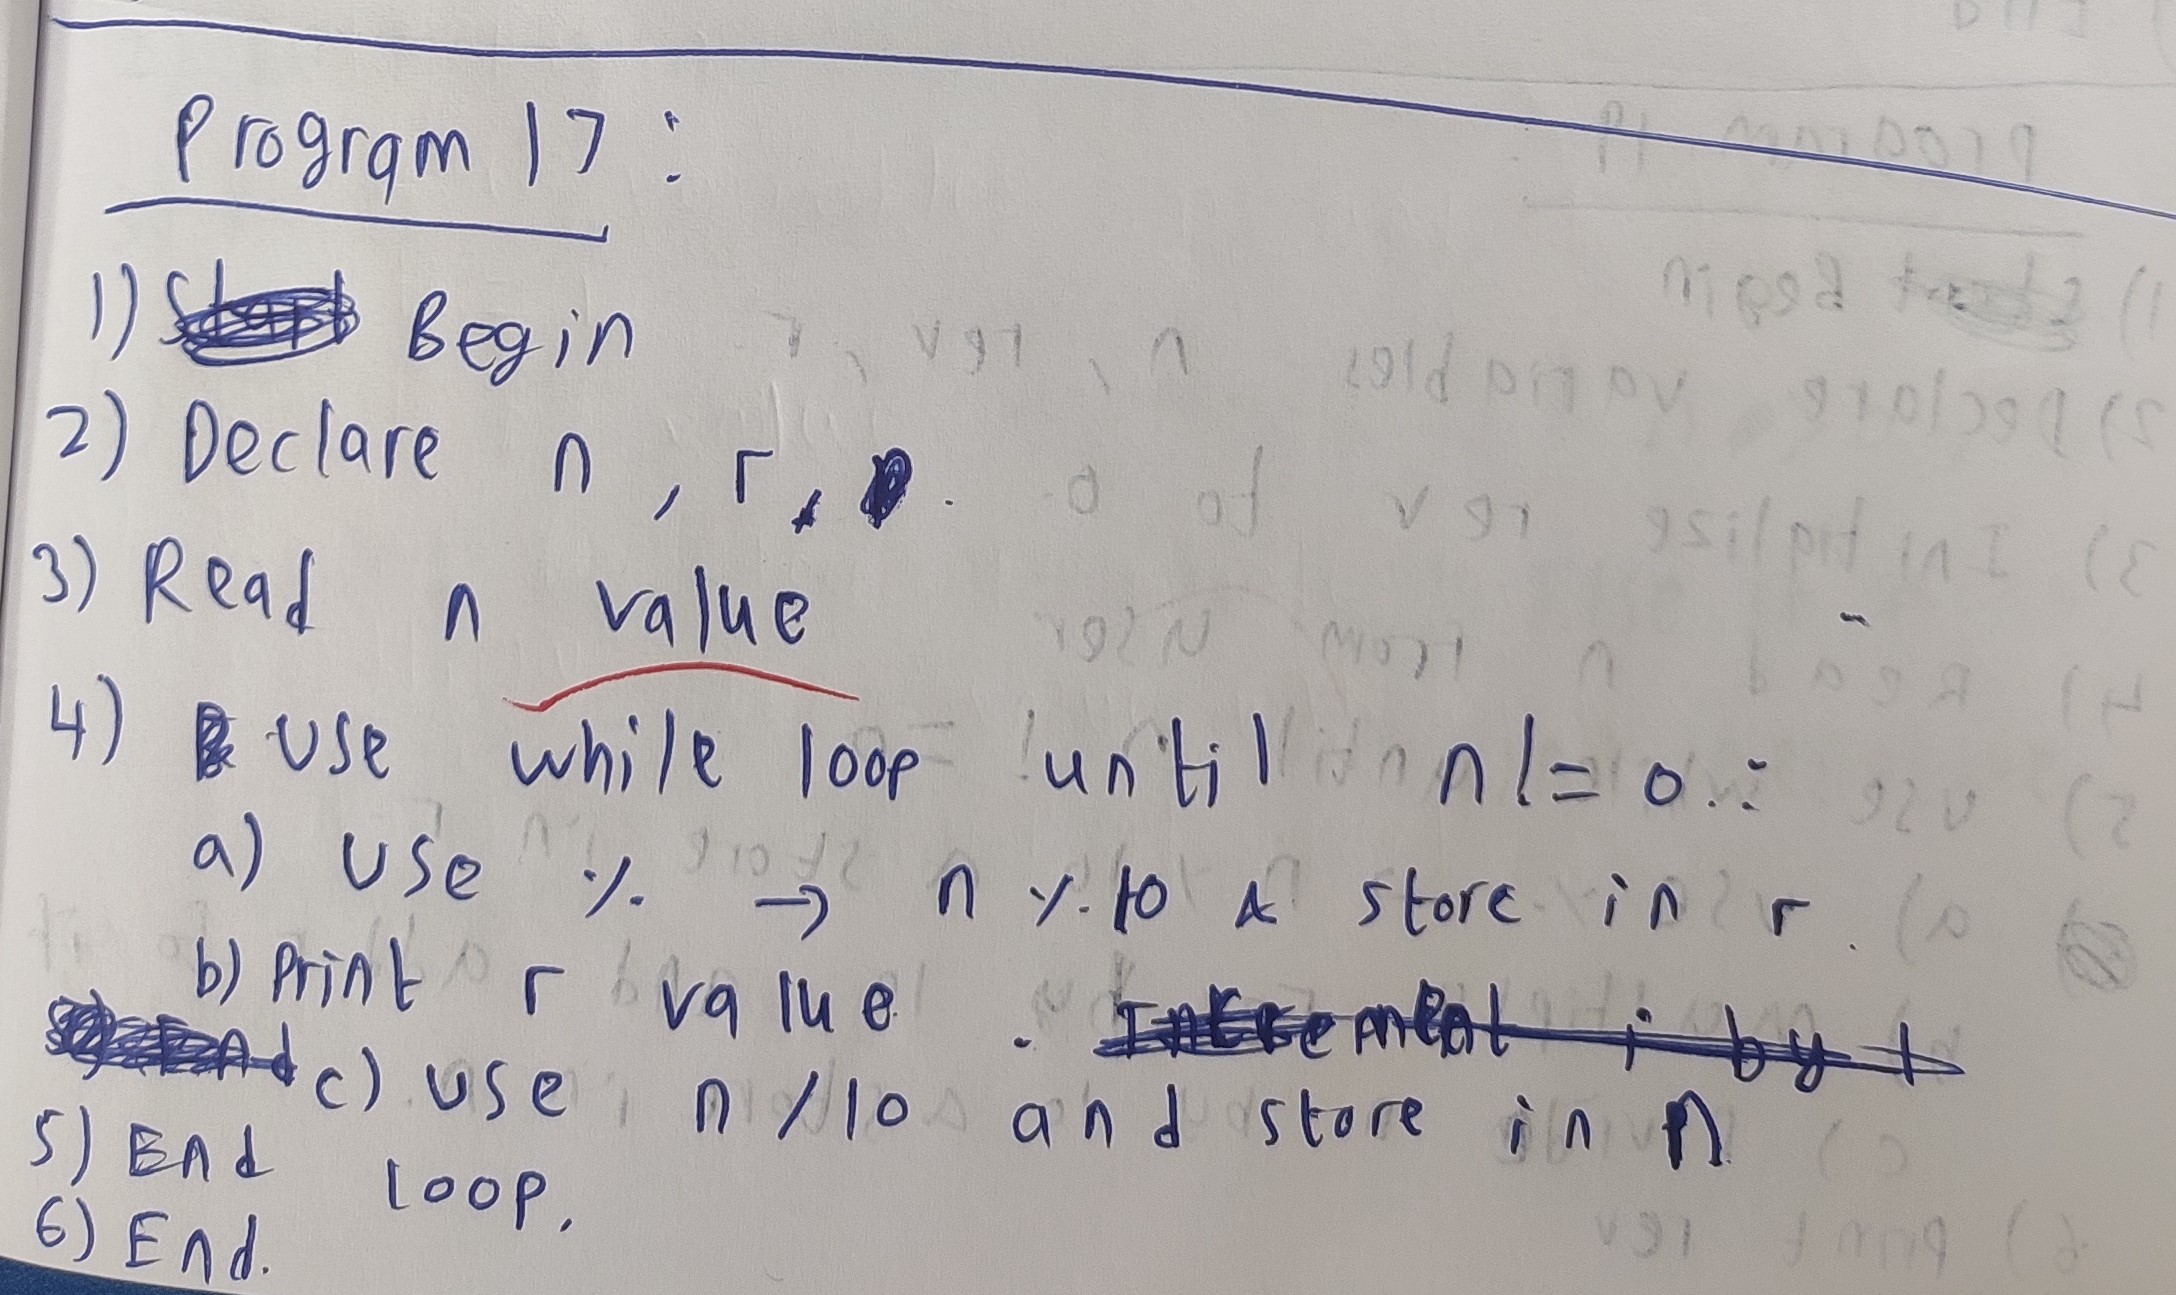 Program 17:
1) Begin
2) Declare n, r,
3) Read n value
4) Use while loop until n != 0.:
a) Use % → n % 10 & store in r.
b) Print r value.
c) Use n / 10 and store in n
5) End loop.
6) End.